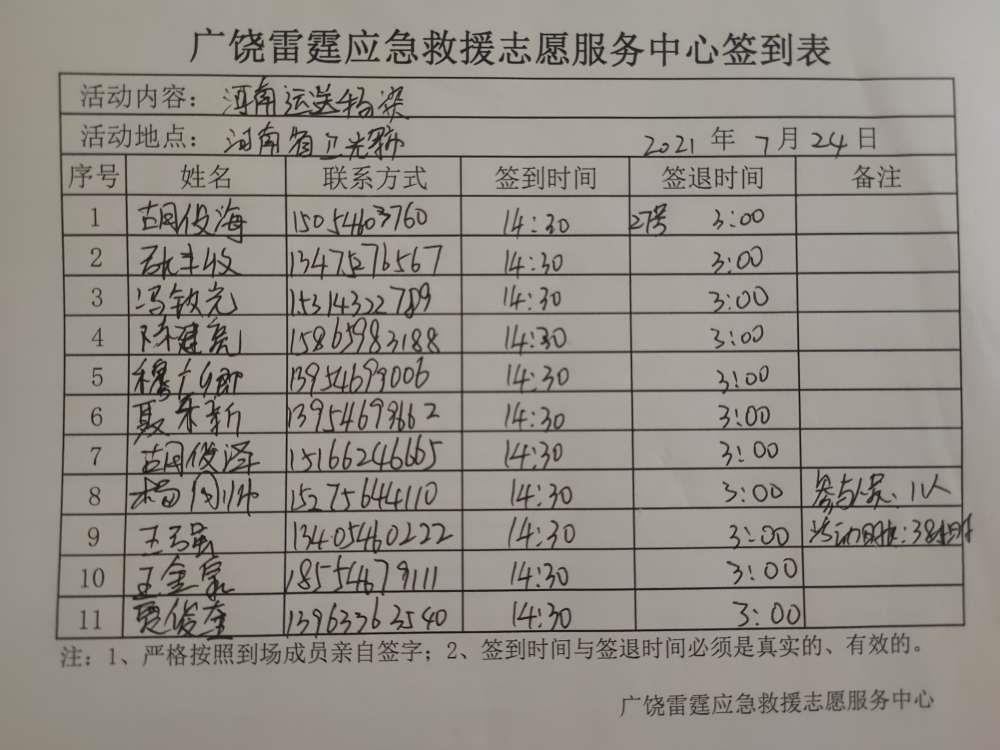 广饶雷霆应急救援志愿服务中心签到表
活动内容：河南运送物资
活动地点：河南省卫光郡 2021年7月24日
序号 姓名 联系方式 签到时间 签退时间 备注
1 胡俊海 15054603760 14:30 27号 3:00
2 13475276567 14:30 3:00
3 冯钦光 15314322789 14:30 3:00
4 陈建亮 15865983188 14:30 3:00
5 穆广卿 13954699006 14:30 3:00
6 聂来新 13954698662 14:30 3:00
7 胡俊泽 15166246665 14:30 3:00
8 杨国师 15275644110 14:30 3:00 参与人员：11人
9 王玉强 13405460222 14:30 3:00 活动时长：38小时
10 王金泉 18554679111 14:30 3:00
11 贾俊奎 13963363540 14:30 3:00
注：1、严格按照到场成员亲自签字；2、签到时间与签退时间必须是真实的、有效的。
广饶雷霆应急救援志愿服务中心